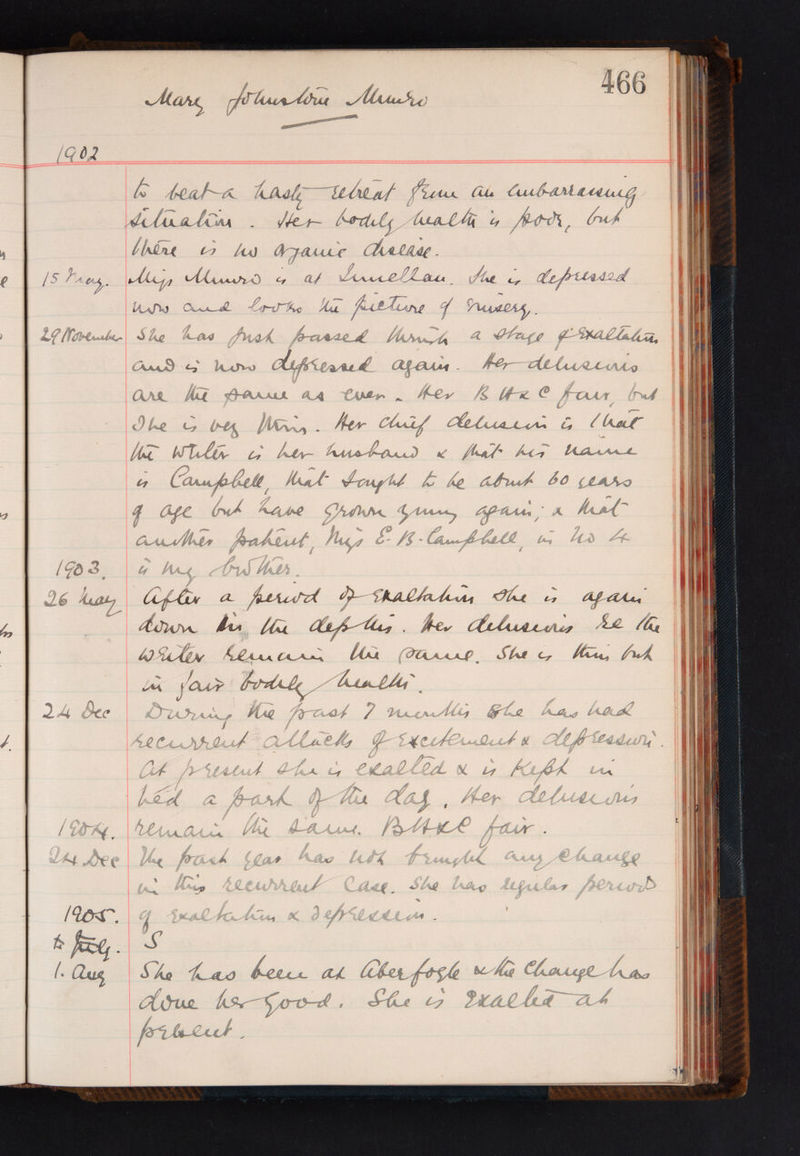 466
Mary Johnstone Munro
1902
to beat a hasty retreat from an embarrassing
situation. Her bodily health is poor, but
there is no organic disease.
15 May. Miss Munro is at Innellan. She is depressed
now and looks the picture of misery.
29 November She has just passed through a stage of exaltation
and is now depressed again. Her delusions
are the same as ever. Her B H & C fair, but
she is very thin. Her chief delusion is that
the writer is her husband & that his name
is Campbell, that sought to be about 60 years
of age but have grown young again; & that
another patient, Miss E. B. Campbell, in No 4
1903. is my brother.
26 May After a period of exaltation she is again
down in the depths. Her delusions re the
writer remain the same. She is thin but
in fair bodily health.
24 Dec During the past 7 months she has had
recurrent attacks of excitement & depression.
At present she is exalted & is kept in
bed a part of the day. Her delusions
1904. remain the same. B H & C fair.
24 Dec The past year has not brought any change
in this recurrent case. She has regular periods
1905. of exaltation & depression.
July. S
1. Aug She has been at Aberfoyle & the change has
done her good. She is exalted at
present.